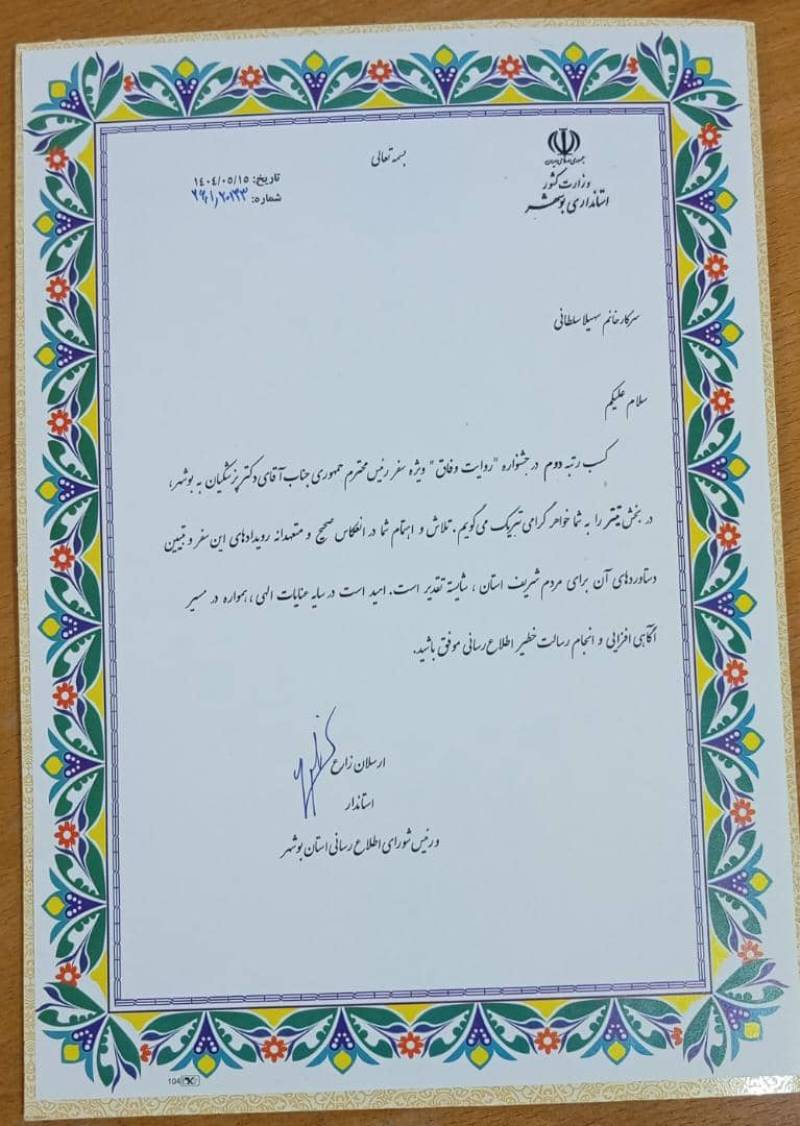 بسمه تعالی
جمهوری اسلامی ایران
وزارت کشور
استانداری بوشهر
تاریخ: ۱۴۰۴/۰۵/۱۵
شماره:
سرکار خانم سهیلا سلطانی
سلام علیکم
کسب رتبه دوم در جشنواره "روایت وفاق" ویژه سفر رئیس محترم جمهوری جناب آقای دکتر پزشکیان به بوشهر،
در بخش تیتر را به شما خواهر گرامی تبریک می‌گویم، تلاش و اهتمام شما در انعکاس صحیح و متعهدانه رویدادهای این سفر و تبیین
دستاوردهای آن برای مردم شریف استان، شایسته تقدیر است. امید است در سایه عنایات الهی، همواره در مسیر
آگاهی افزایی و انجام رسالت خطیر اطلاع رسانی موفق باشید.
ارسلان زارع
استاندار
و رئیس شورای اطلاع رسانی استان بوشهر
104